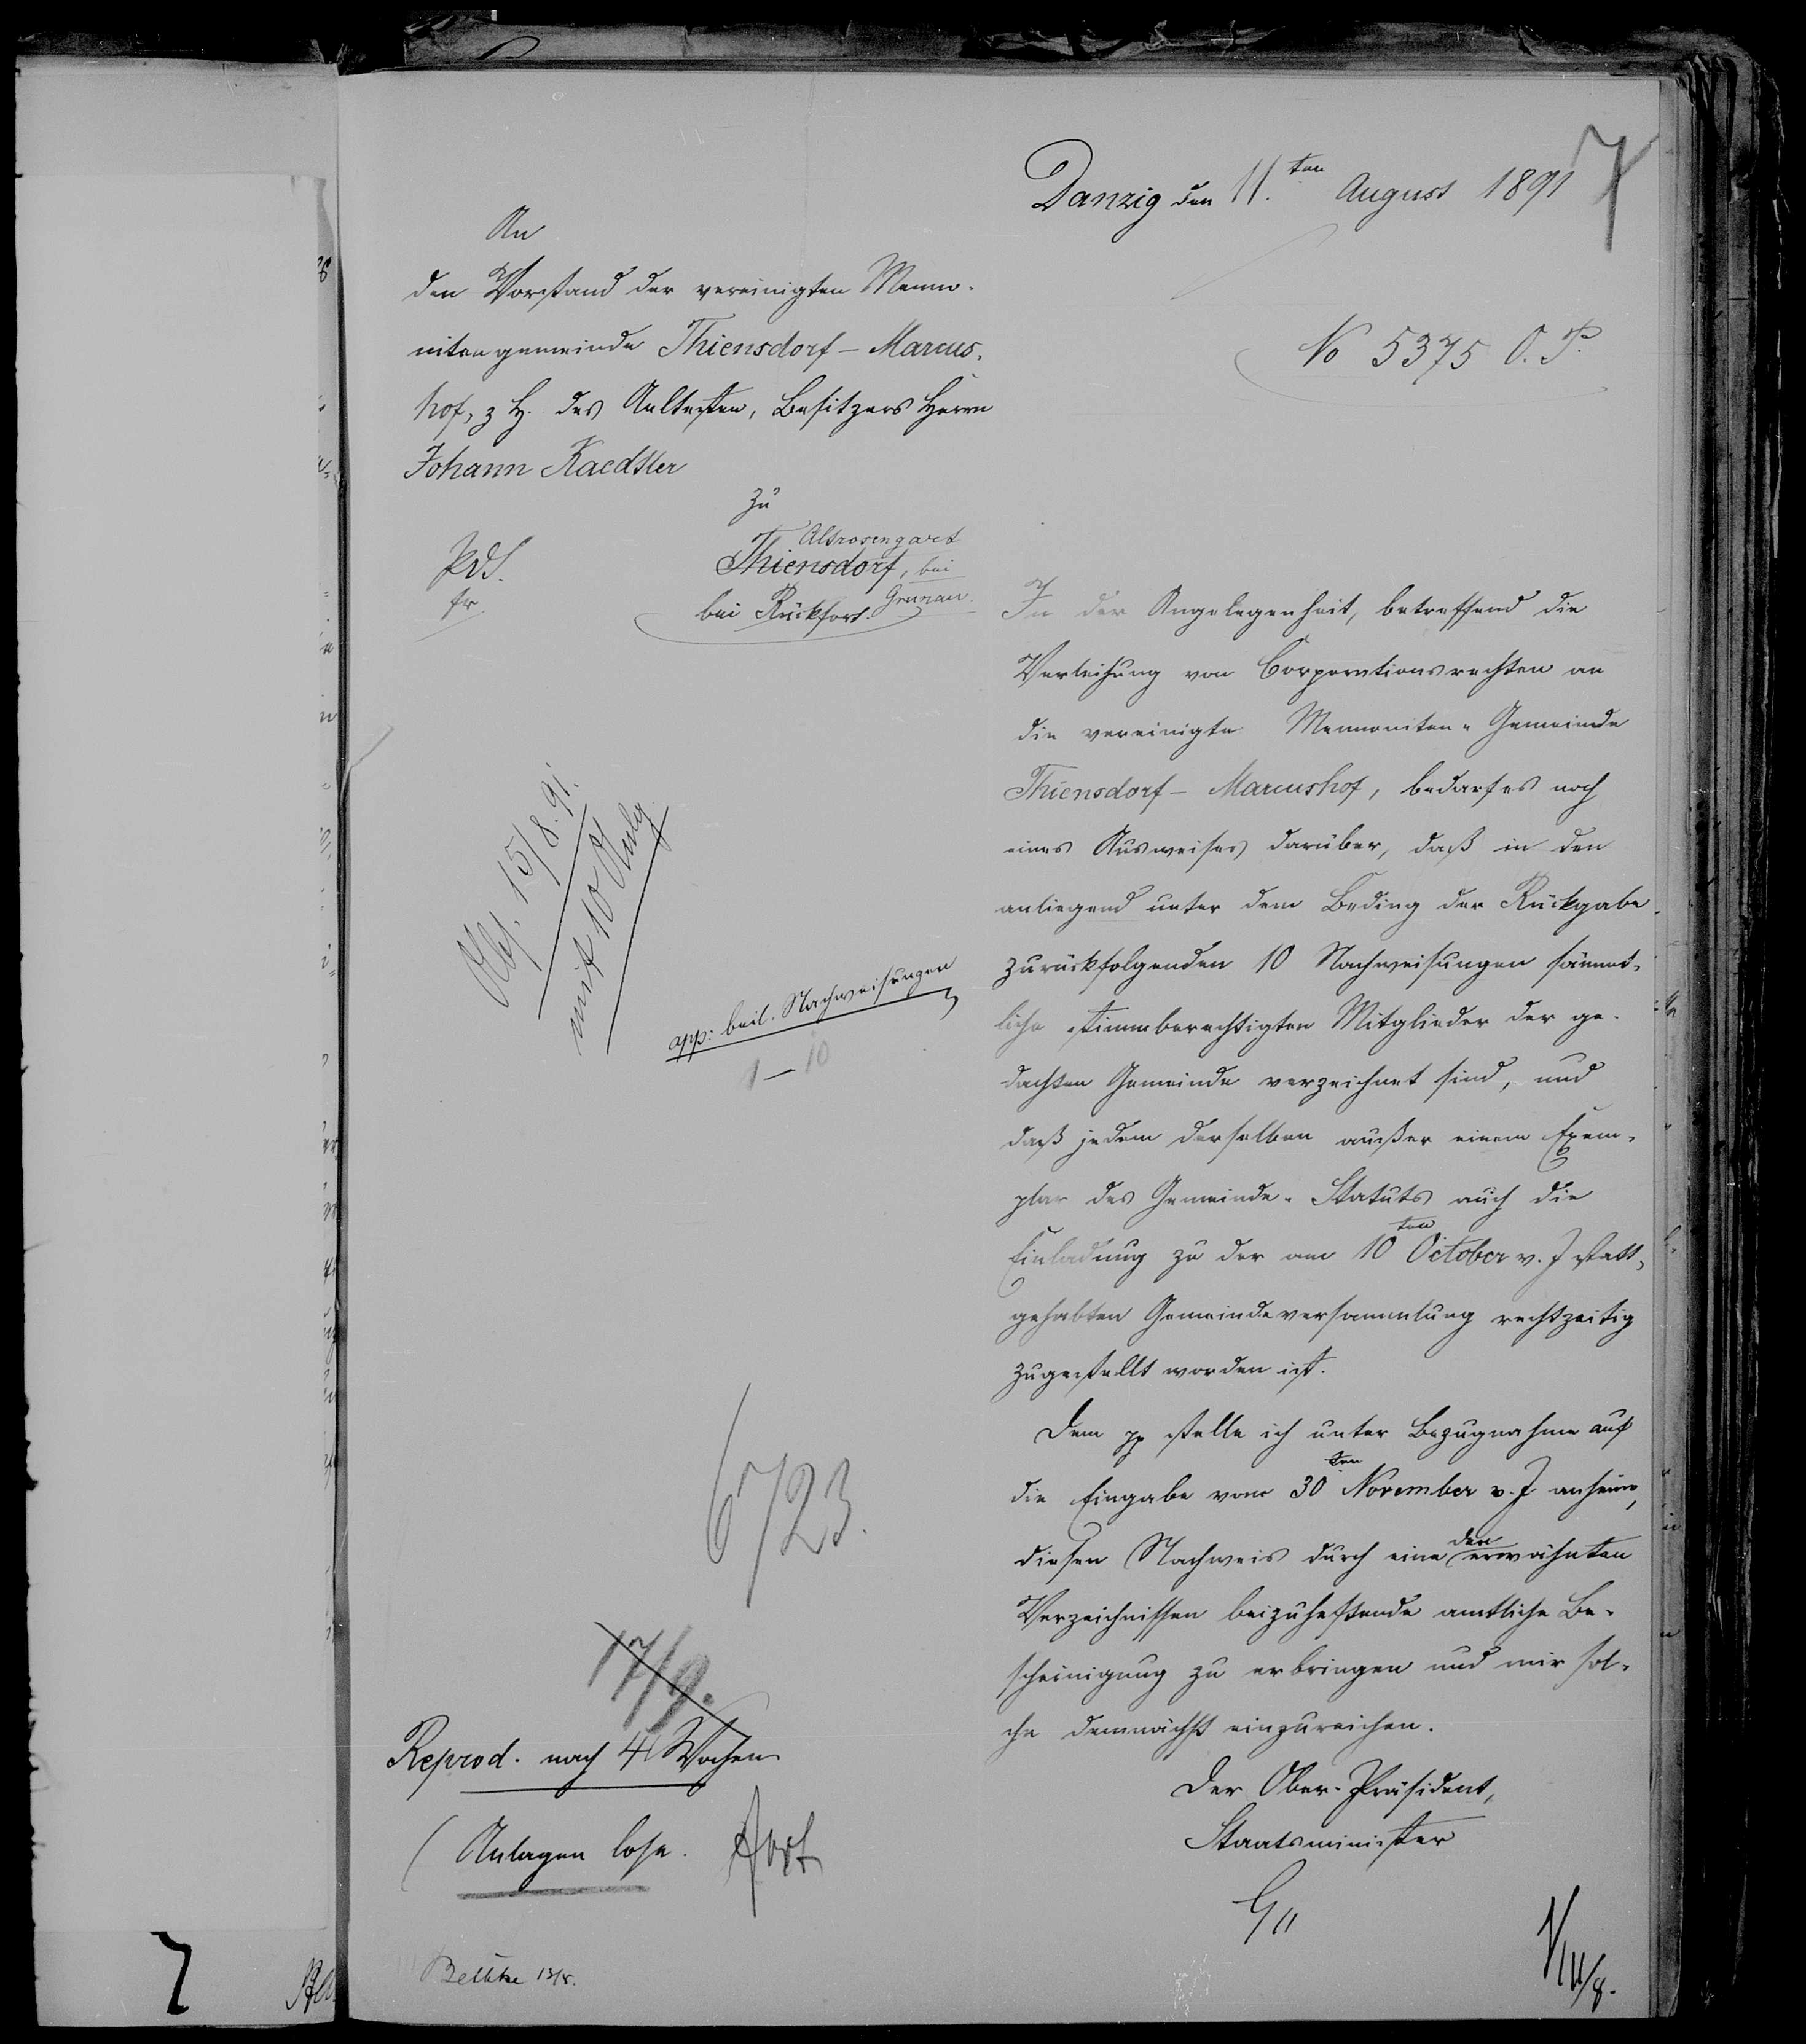 7
Danzig den 11.ten August 1891
No 5375 O. P.
An
den Vorstand der vereinigten Menno-
nitengemeinde Thiensdorf – Marcus-
hof, z H. des Aeltesten, Besitzers Herrn
Johann Kaedtler
zu
Altrosengart
Thiensdorf, bei
Grunau.
bei Rückfort.
PdS.
fr.
In der Angelegenheit, betreffend die
Verleihung von Corporationsrechten an
die vereinigte Mennoniten-Gemeinde
Thiensdorf – Marcushof, bedarf es noch
eines Ausweises darüber, daß in den
anliegend unter dem Beding der Rückgabe
zurückfolgenden 10 Nachweisungen sämmt-
liche stimmberechtigten Mitglieder der ge-
dachten Gemeinde verzeichnet sind, und
daß jedem derselben außer einem Exem-
plar des Gemeinde-Statuts auch die
Einladung zu der am 10ten October v. J statt-
gehabten Gemeindeversammlung rechtzeitig
zugestellt worden ist.
Dem pp stelle ich unter Bezugnahme auf
die Eingabe vom 30ten November v. J anheim,
diesen Nachweis durch eine den erwähnten
Verzeichnissen beizuheftende amtliche Be-
scheinigung zu erbringen und mir sol-
che demnächst einzureichen.
Der Ober-Präsident,
Staatsminister
Abg. 15/8.91.
mit 10 Anlg
app: beil. Nachweisungen
1–10
6723.
17/9.
Reprod. nach 4 Wochen
(Anlagen lose.
Bethke 13/8.
11/8.